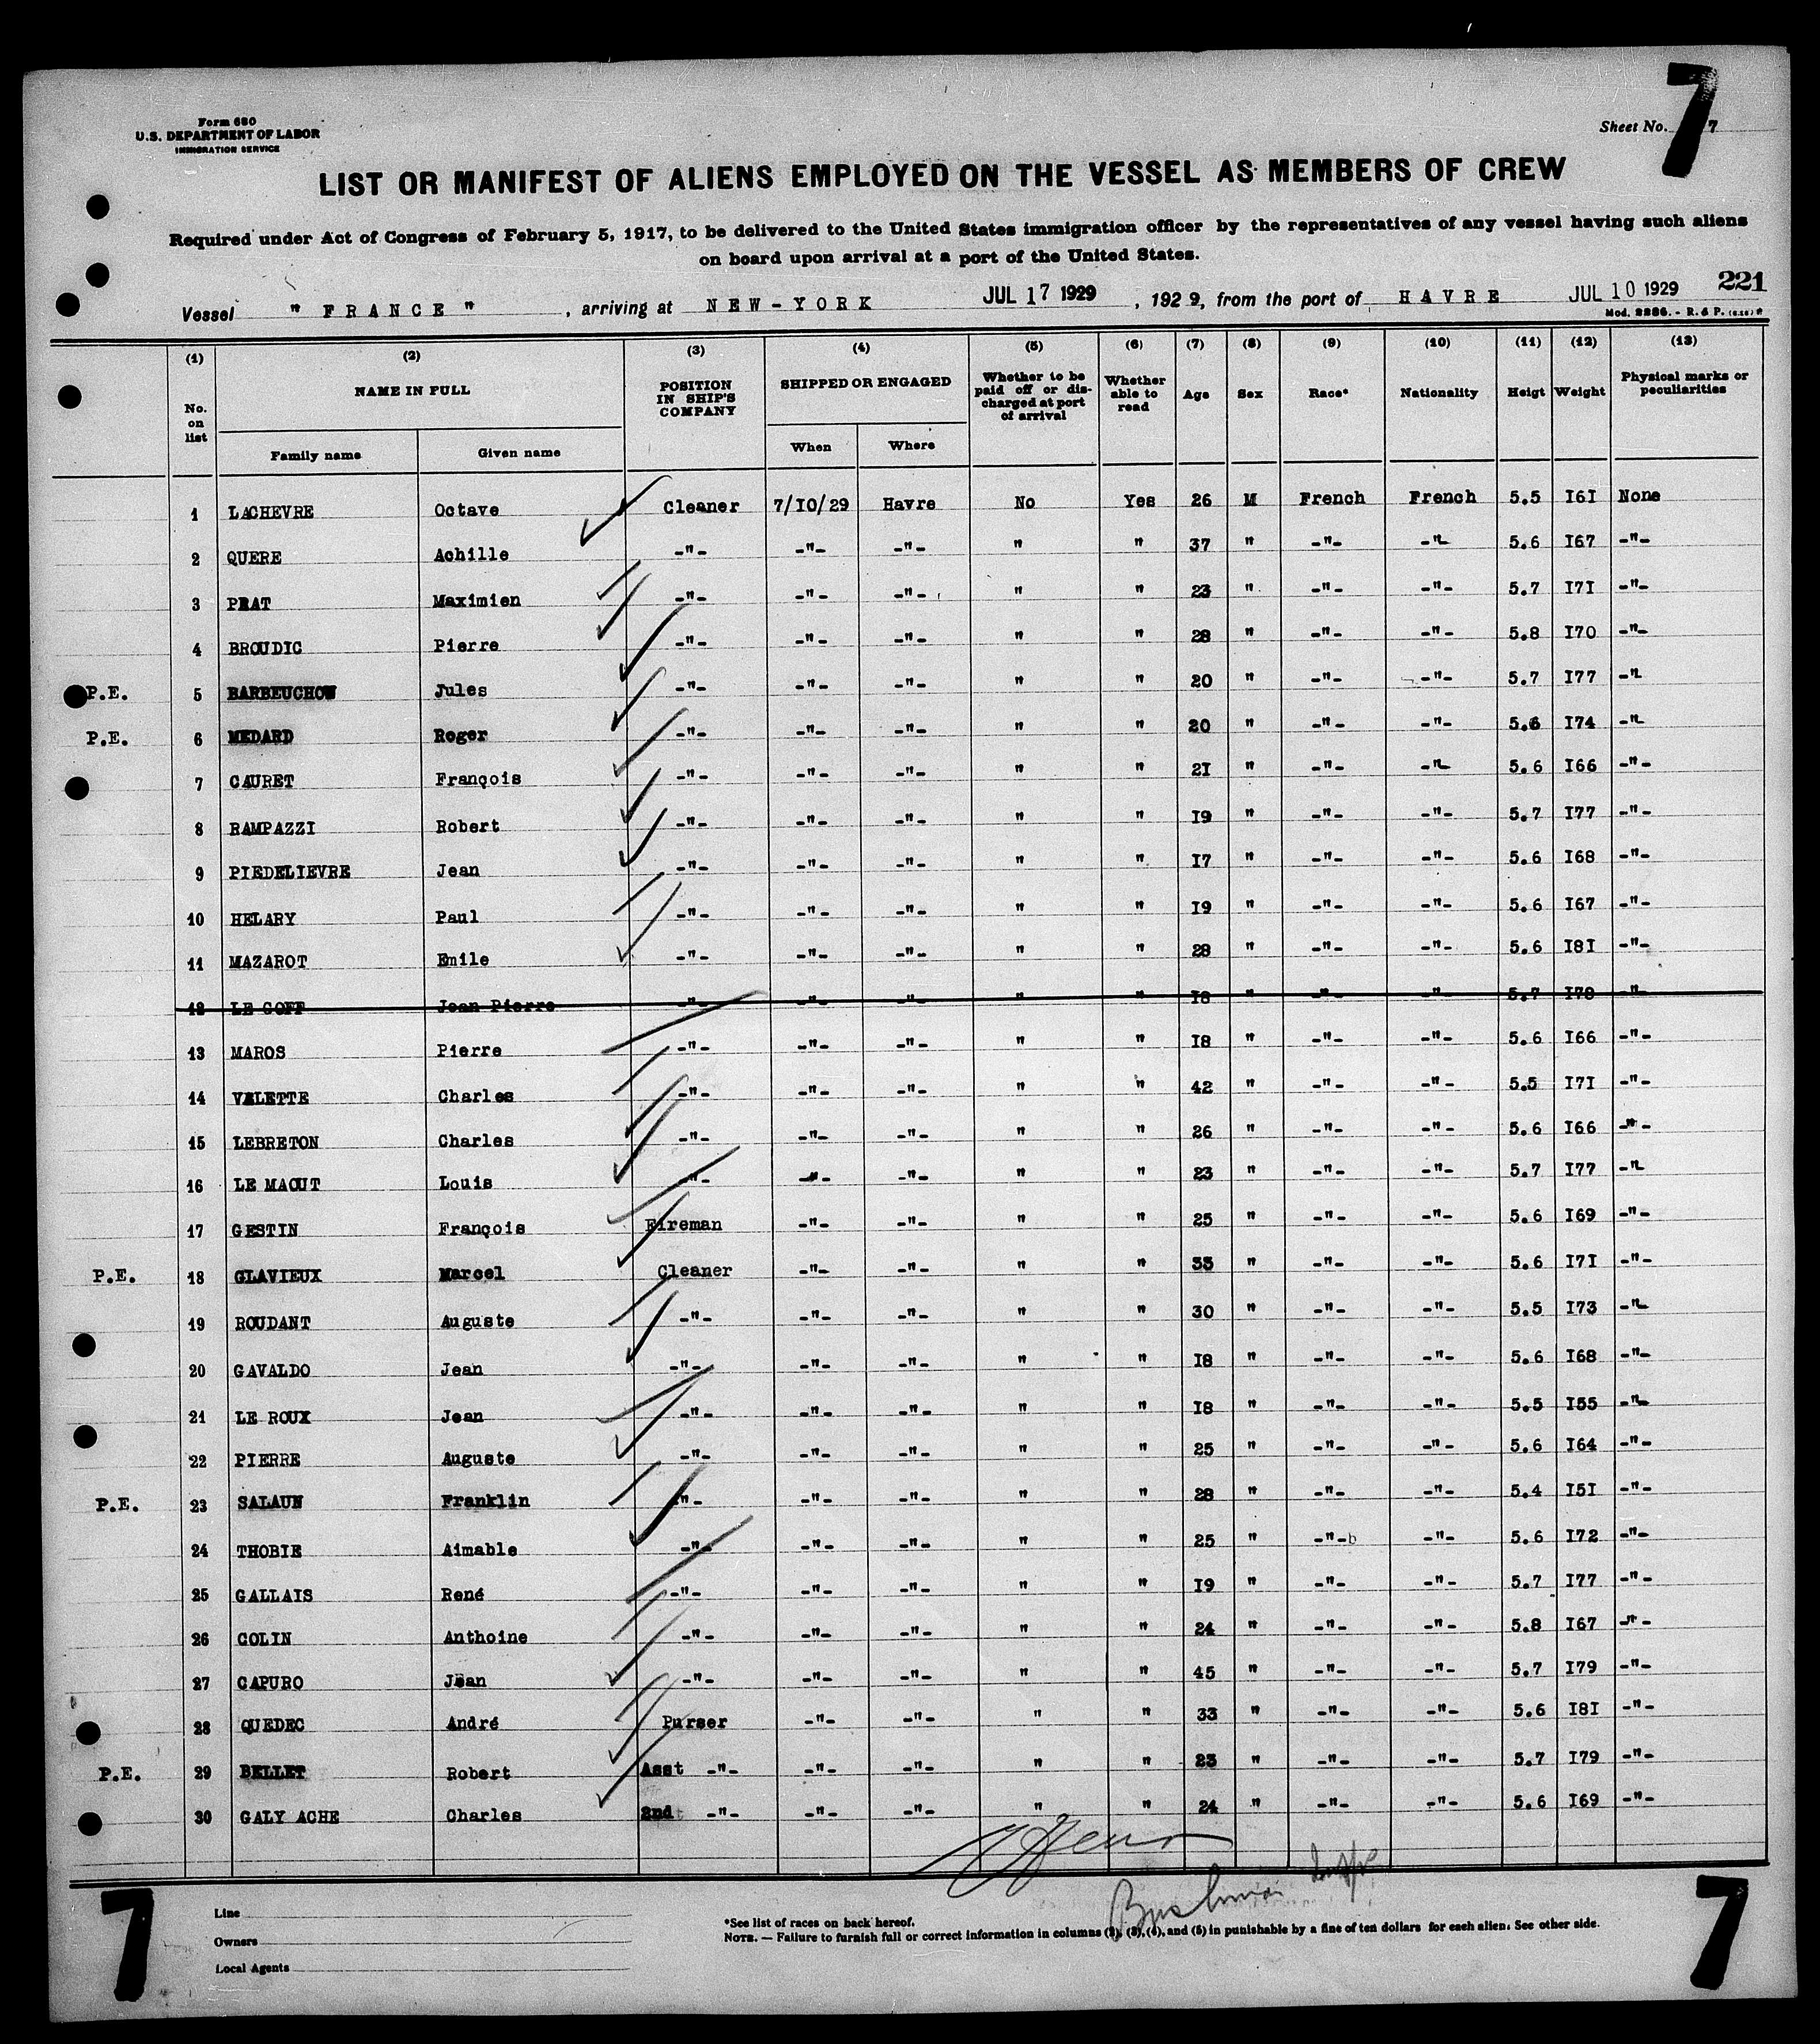 7
Form 680
U.S. DEPARTMENT OF LABOR
IMMIGRATION SERVICE
Sheet No. 7
LIST OR MANIFEST OF ALIENS EMPLOYED ON THE VESSEL AS MEMBERS OF CREW
Required under Act of Congress of February 5, 1917, to be delivered to the United States immigration officer by the representatives of any vessel having such aliens
on board upon arrival at a port of the United States.
221
Vessel " FRANCE " , arriving at NEW-YORK JUL 17 1929 , 1929, from the port of HAVRE JUL 10 1929
Mod. 2286. - R. & P.
(1) (2) (3) (4) (5) (6) (7) (8) (9) (10) (11) (12) (13)
No. on list NAME IN FULL POSITION IN SHIP'S COMPANY SHIPPED OR ENGAGED Whether to be paid off or discharged at port of arrival Whether able to read Age Sex Race* Nationality Heigt Weight Physical marks or peculiarities
Family name Given name When Where
1 LACHEVRE Octave Cleaner 7/10/29 Havre No Yes 26 M French French 5.5 I6I None
2 QUERE Achille -"- -"- -"- " " 37 " -"- -"- 5.6 I67 -"-
3 PRAT Maximien -"- -"- -"- " " 23 " -"- -"- 5.7 I7I -"-
4 BROUDIC Pierre -"- -"- -"- " " 28 " -"- -"- 5.8 I70 -"-
P.E. 5 BARBEUCHON Jules -"- -"- -"- " " 20 " -"- -"- 5.7 I77 -"-
P.E. 6 MEDARD Roger -"- -"- -"- " " 20 " -"- -"- 5.6 I74 -"-
7 CAURET François -"- -"- -"- " " 2I " -"- -"- 5.6 I66 -"-
8 RAMPAZZI Robert -"- -"- -"- " " I9 " -"- -"- 5.7 I77 -"-
9 PIEDELIEVRE Jean -"- -"- -"- " " I7 " -"- -"- 5.6 I68 -"-
10 HELARY Paul -"- -"- -"- " " I9 " -"- -"- 5.6 I67 -"-
11 MAZAROT Emile -"- -"- -"- " " 28 " -"- -"- 5.6 I8I -"-
12 LE GOFF Jean Pierre -"- -"- -"- " " I8 " -"- -"- 5.7 I78 -"-
13 MAROS Pierre -"- -"- -"- " " I8 " -"- -"- 5.6 I66 -"-
14 VALETTE Charles -"- -"- -"- " " 42 " -"- -"- 5.5 I7I -"-
15 LEBRETON Charles -"- -"- -"- " " 26 " -"- -"- 5.6 I66 -"-
16 LE MAOUT Louis -"- -"- -"- " " 23 " -"- -"- 5.7 I77 -"-
17 GESTIN François Fireman -"- -"- " " 25 " -"- -"- 5.6 I69 -"-
P.E. 18 GLAVIEUX Marcel Cleaner -"- -"- " " 33 " -"- -"- 5.6 I7I -"-
19 ROUDANT Auguste -"- -"- -"- " " 30 " -"- -"- 5.5 I73 -"-
20 GAVALDO Jean -"- -"- -"- " " I8 " -"- -"- 5.6 I68 -"-
21 LE ROUX Jean -"- -"- -"- " " I8 " -"- -"- 5.5 I55 -"-
22 PIERRE Auguste -"- -"- -"- " " 25 " -"- -"- 5.6 I64 -"-
P.E. 23 SALAUN Franklin -"- -"- -"- " " 28 " -"- -"- 5.4 I5I -"-
24 THOBIE Aimable -"- -"- -"- " " 25 " -"- -"- 5.6 I72 -"-
25 GALLAIS René -"- -"- -"- " " I9 " -"- -"- 5.7 I77 -"-
26 COLIN Anthoine -"- -"- -"- " " 24 " -"- -"- 5.8 I67 -"-
27 CAPURO Jean -"- -"- -"- " " 45 " -"- -"- 5.7 I79 -"-
28 QUEDEC André Purser -"- -"- " " 33 " -"- -"- 5.6 I8I -"-
P.E. 29 BELLET Robert Asst -"- -"- -"- " " 23 " -"- -"- 5.7 I79 -"-
30 GALY ACHE Charles 2nd -"- -"- -"- " " 24 " -"- -"- 5.6 I69 -"-
7
Line
Owners
Local Agents
*See list of races on back hereof.
NOTE. — Failure to furnish full or correct information in columns (2), (3), (4), and (5) in punishable by a fine of ten dollars for each alien. See other side.
7